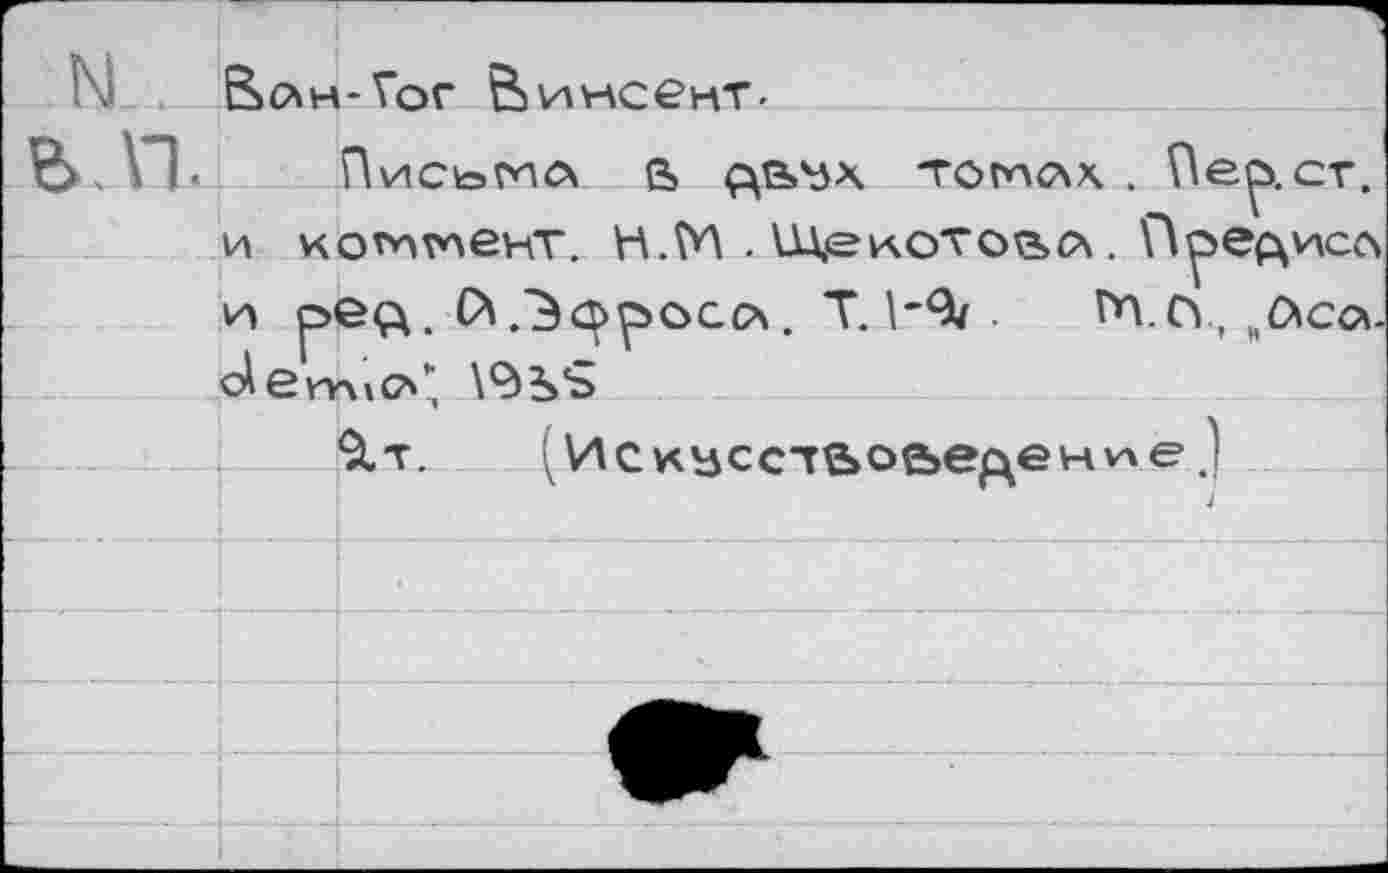 N Ван-Гог Винсент.
В.П. Письма в двух томах. Пер. ст.
и коммент. Н.М. Щекотова. Предисл
и ред. А.Эфроса. Т.1-2. М.Л., „Аса-
demia", 1935
2т. (Искусствоведение.)